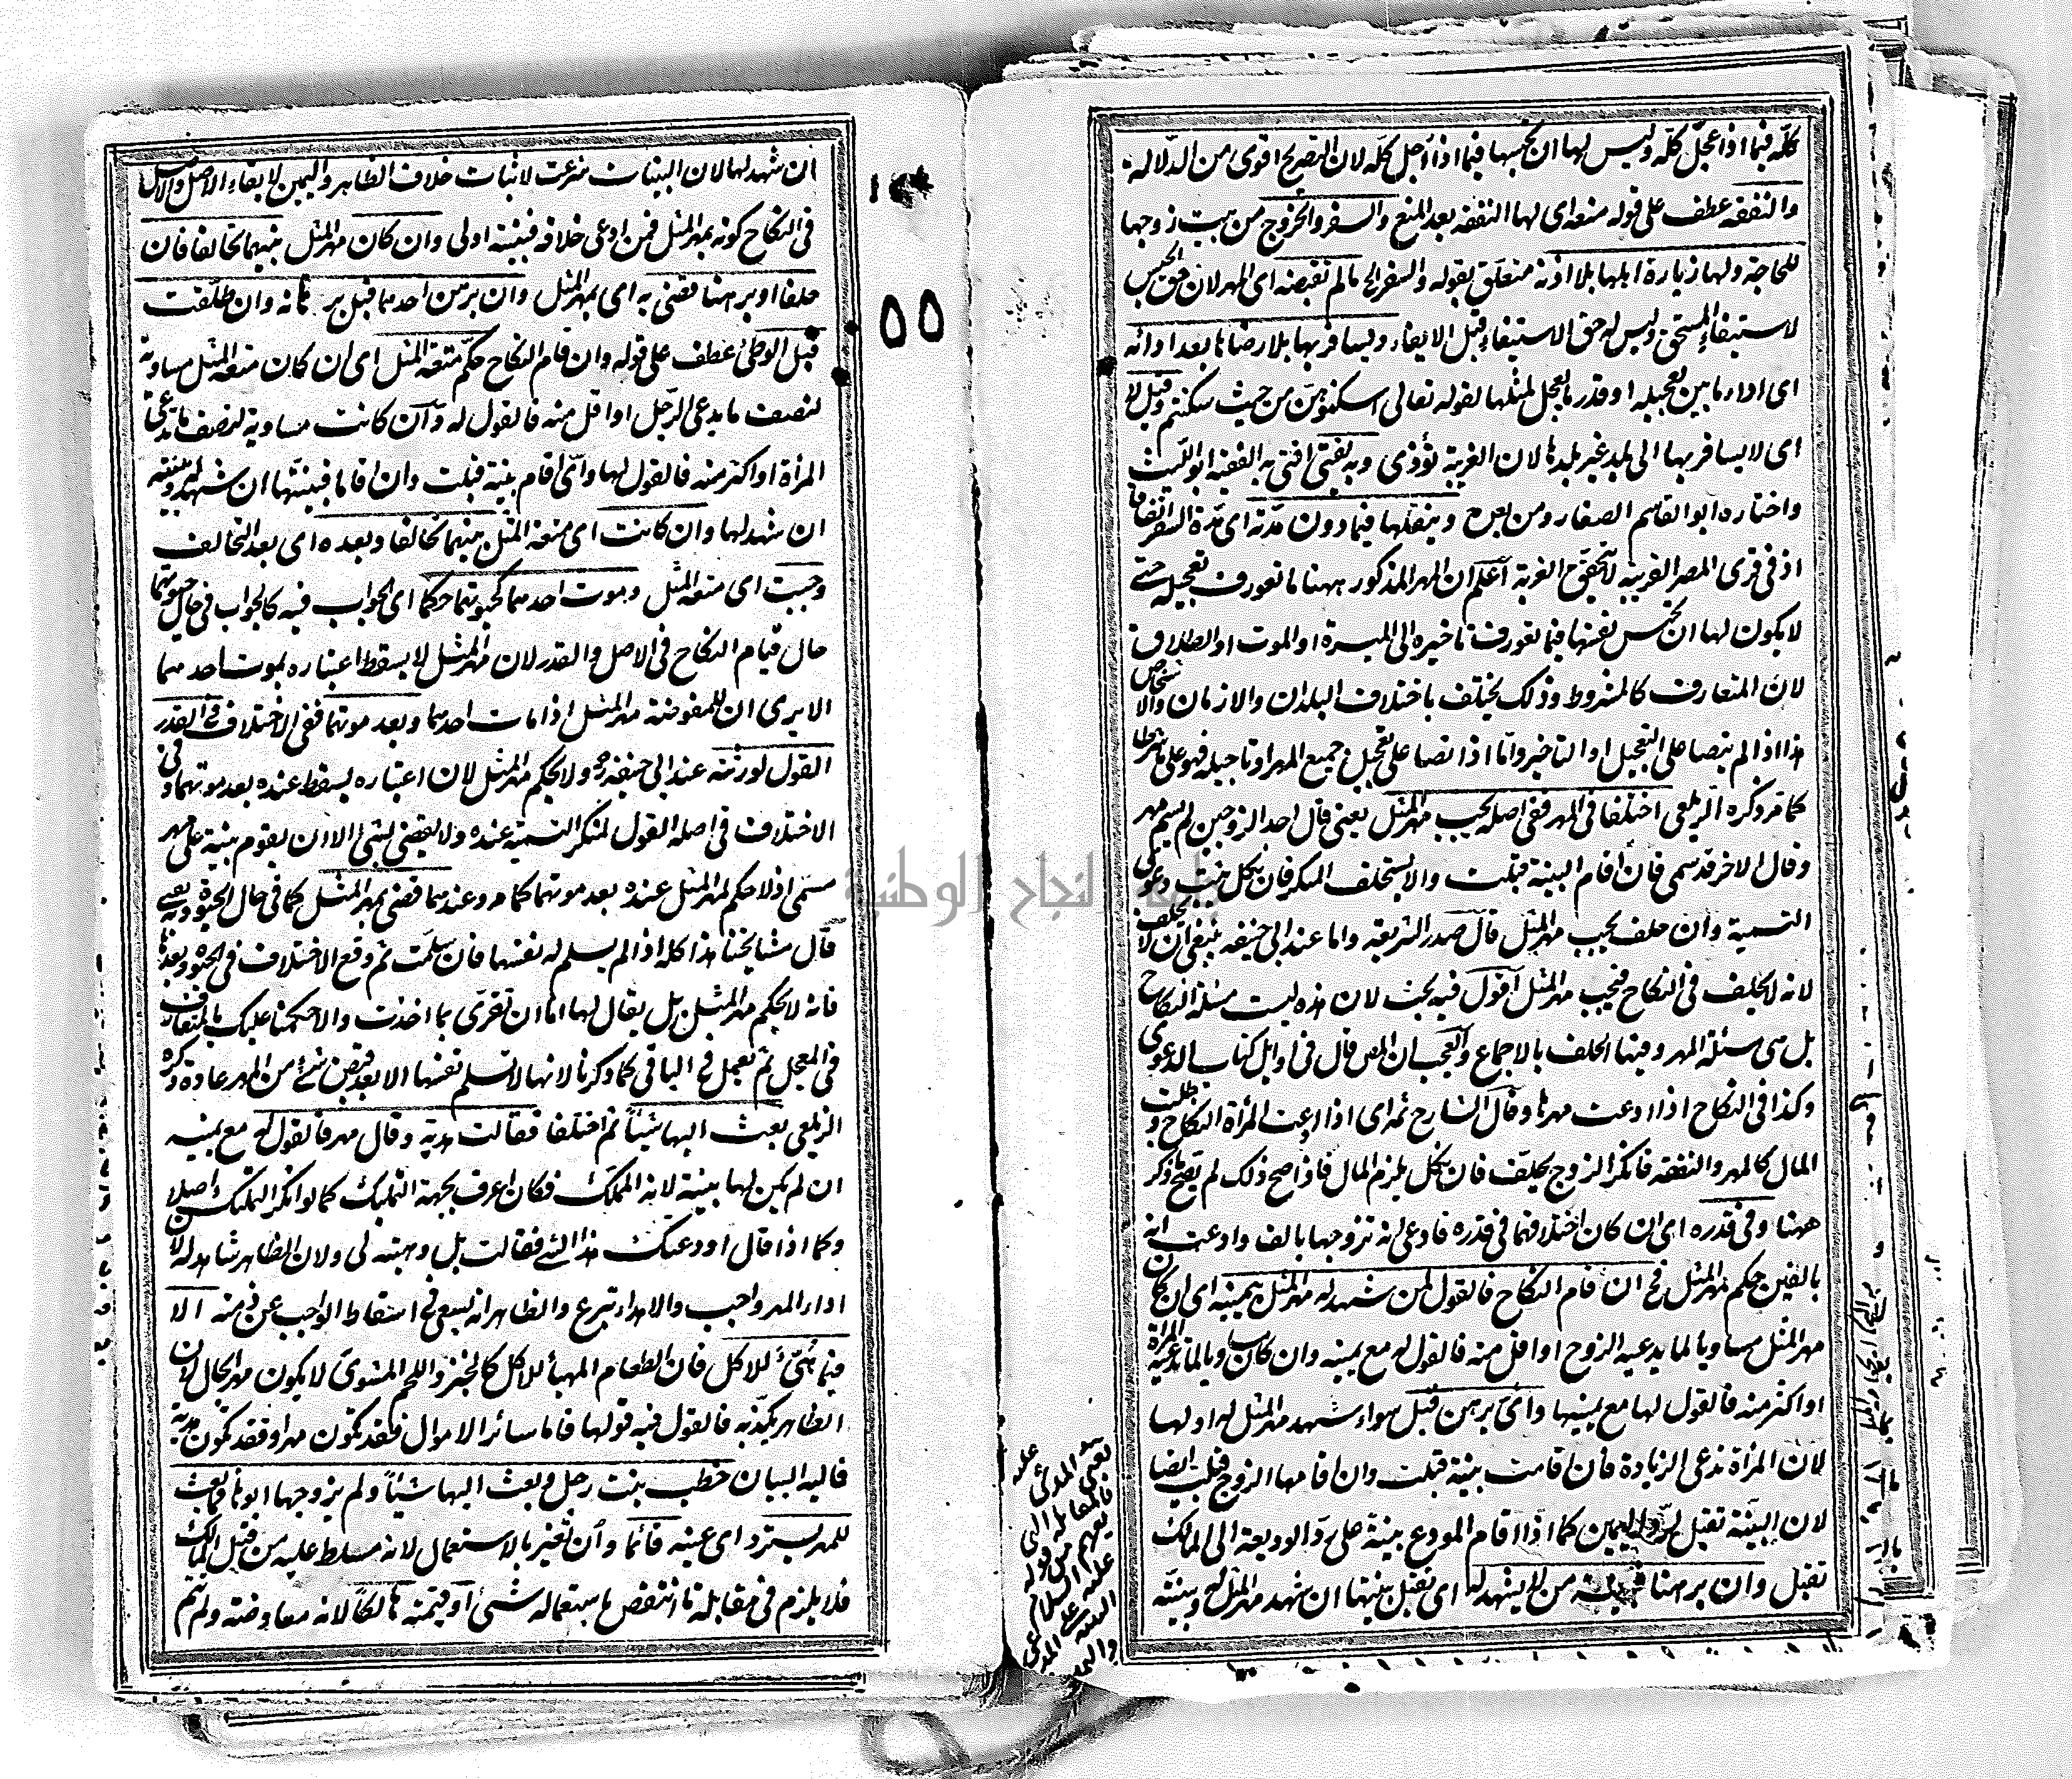 كله فيما اذا عجل كله وليس لها ان تحبسها فيما اذا اجل كله لان التصريح اقوى من الدلالة
والنفقة عطف على قوله منعه اى لها النفقة بعد المنع والسفر والخروج من بيت زوجها
للحاجة ولها زيارة اهلها بلا اذنه متعلق بقوله والسفر الخ مالم تقبضه اى المهر لان حق الحبس
لاستيفاء المستحق وليس له حق الاستيفاء قبل الايفاء ويسافر بها بلا رضاها بعد ادائه
اى اداء ما بين تعجيله او قدر ما يعجل لمثلها لقوله تعالى اسكنوهن من حيث سكنتم وقيل لا
اى لا يسافر بها الى بلد غير بلدها لان الغريبة تؤذى وبه يفتى افتى به الفقيه ابو الليث
واختاره ابو القاسم الصفار ومن بعده وينقلها فيما دون مدته اى مدة السفر اتفاقا
اذ فى قرى المصر القريبة لا تتحقق الغربة اعلم ان المهر المذكور ههنا ما تعورف تعجيله حتى
لا يكون لها ان تحبس نفسها فيما تعورف تأخيره الى الميسرة او الموت او الطلاق
لان المتعارف كالمشروط وذلك يختلف باختلاف البلدان والازمان والاشخاص
هذا اذا لم ينصا على التعجيل او التاخير واما اذا نصا على تعجيل جميع المهر او تاجيله فهو على ما شرطا
كما مر وذكره الزيلعى اختلفا فى المهر ففى اصله يجب مهر المثل يعنى قال احد الزوجين لم يسم مهر
وقال الاخر قد سمى فان اقام البينة قبلت والا يستحلف المنكر فان نكل يثبت دعوى
التسمية وان حلف يجب مهر المثل قال صدر الشريعة واما عند ابى حنيفة ينبغى ان لا يحلف
لانه لا تحليف فى النكاح فيجب مهر المثل اقول فيه بحث لان هذه ليست مسئلة النكاح
بل هى مسئلة المهر وفيها الحلف بالاجماع والعجب ان المص قال فى اوايل كتاب الدعوى
وكذا فى النكاح اذا ادعت مهرها وقال الشارح ثمه اى اذا ادعت المرأة النكاح وطلبت
المال كالمهر والنفقة فانكر الزوج يحلف فان نكل يلزم المال فاذا صح ذلك لم يصح ما ذكر
ههنا وفى قدره اى ان كان اختلافهما فى قدره فادعى انه تزوجها بالف وادعت انه
بالفين حكم مهر المثل فح ان قام النكاح فالقول لمن شهد له مهر المثل بيمينه اى ان كان
مهر المثل مساويا لما يدعيه الزوج او اقل منه فالقول له مع يمينه وان كان مساويا لما تدعيه المرأة
او اكثر منه فالقول لها مع يمينها واى برهن قبل سواء شهد مهر المثل له او لها
لان المرأة تدعى الزيادة فان اقامت بينة قبلت وان اقامها الزوج قبلت ايضا
لان البينة تقبل لرد اليمين كما اذا اقام المودع بينة على رد الوديعة الى المالك
تقبل وان برهنا فبينة من لا يشهد له اى تقبل بينتها ان شهد مهر المثل له وبينته
يعنى المدعى عليه
فالمعاملة التى
يفهم من قوله
عليه السلام
البينة على المدعى
واليمـ
ان شهد لها لان البينات شرعت لاثبات خلاف الظاهر واليمين لابقاء الاصل والاصل
فى النكاح كونه بمهر المثل فمن ادعى خلافه فبينته اولى وان كان مهر المثل بينهما تحالفا فان
حلفا او برهنا قضى به اى بمهر المثل وان برهن احدهما قبل برهانه وان طلقت
قبل الوطئ عطف على قوله وان قام النكاح حكم متعة المثل اى ان كان متعة المثل مساوية
لنصف ما يدعى الرجل او اقل منه فالقول له وان كانت مساوية لنصف ما تدعى
المرأة او اكثر منه فالقول لها واى اقام بينة قبلت وان اقاما فبينتها ان شهد له وبينته
ان شهد لها وان كانت اى متعة المثل بينهما تحالفا وبعده اى بعد التحالف
وجبت اى متعة المثل وموت احدهما كحيوتهما حكما اى الجواب فيه كالجواب فى حال حيوتهما
حال قيام النكاح فى الاصل والقدر لان مهر المثل لا يسقط اعتباره بموت احدهما
الا يرى ان للمفوضة مهر المثل اذا مات احدهما وبعد موتهما ففى الاختلاف فى القدر
القول لورثته عند ابى حنيفة ره ولا يحكم مهر المثل لان اعتباره يسقط عنده بعد موتهما وفى
الاختلاف فى اصله القول لمنكر التسمية عنده ولا يقضى بشئ الا ان يقوم بينة على مهر
مسمى اذ لا حكم لمهر المثل عنده بعد موتهما كما مر وعندهما قضى بمهر المثل كما فى حال الحيوة وبه يفتى
قال مشايخنا هذا كله اذا لم يسلم له نفسها فان سلمت ثم وقع الاختلاف فى الحيوة وبعدها
فانه لا يحكم مهر المثل بل يقال لها اما ان تقرى بما اخذت والا حكمنا عليك بالمتعارف
فى المعجل ثم نعمل فى الباقى كما ذكرنا لانها لا تسلم نفسها الا بعد قبض شئ من المهر عادة ذكره
الزيلعى بعث اليها شيئا ثم اختلفا فقالت هدية وقال مهر فالقول له مع يمينه
ان لم يكن لها بينة لانه المملك فكان اعرف بجهة التمليك كما لو انكر التمليك اصلا
وكما اذا قال اودعتك هذا الشئ فقالت بل وهبته لى ولان الظاهر شاهد له لان
اداء المهر واجب والاهداء تبرع والظاهر انه يسعى فى اسقاط الواجب عن ذمته الا
فيما هيئ للاكل فان الطعام المهيأ للاكل كالخبز واللحم المشوى لا يكون مهر الحال لان
الظاهر يكذبه فالقول فيه قولها فاما سائر الاموال فقد تكون مهرا وقد تكون هدية
فاليه البيان خطب بنت رجل وبعث اليها شيئا ولم يزوجها ابوها فما بعث
للمهر يسترد اى عينه قائما وان تغير بالاستعمال لانه مسلط عليه من قبل المالك
فلا يلزم فى مقابلة ما انتقض باستعماله شئ او قيمته هالكا لانه معاوضة ولم تتم
٥٥
جامعة النجاح الوطنية